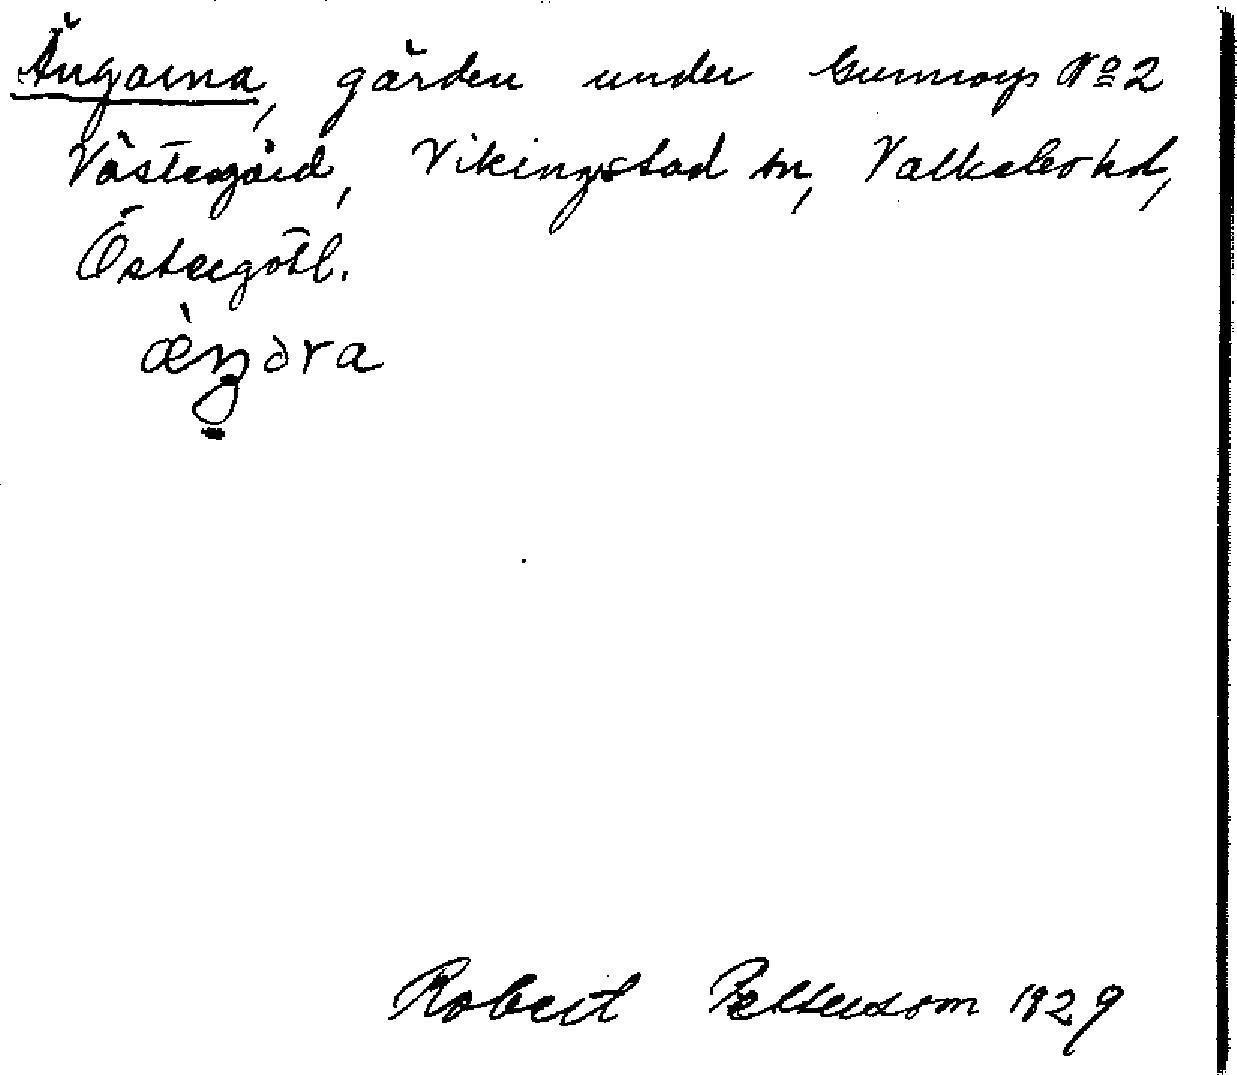 Ängarna, gärden under Gunnorp No 2
Västergård, Vikingstad sn, Valkebo hd,
Östergötl.
Robert Pettersson 1929